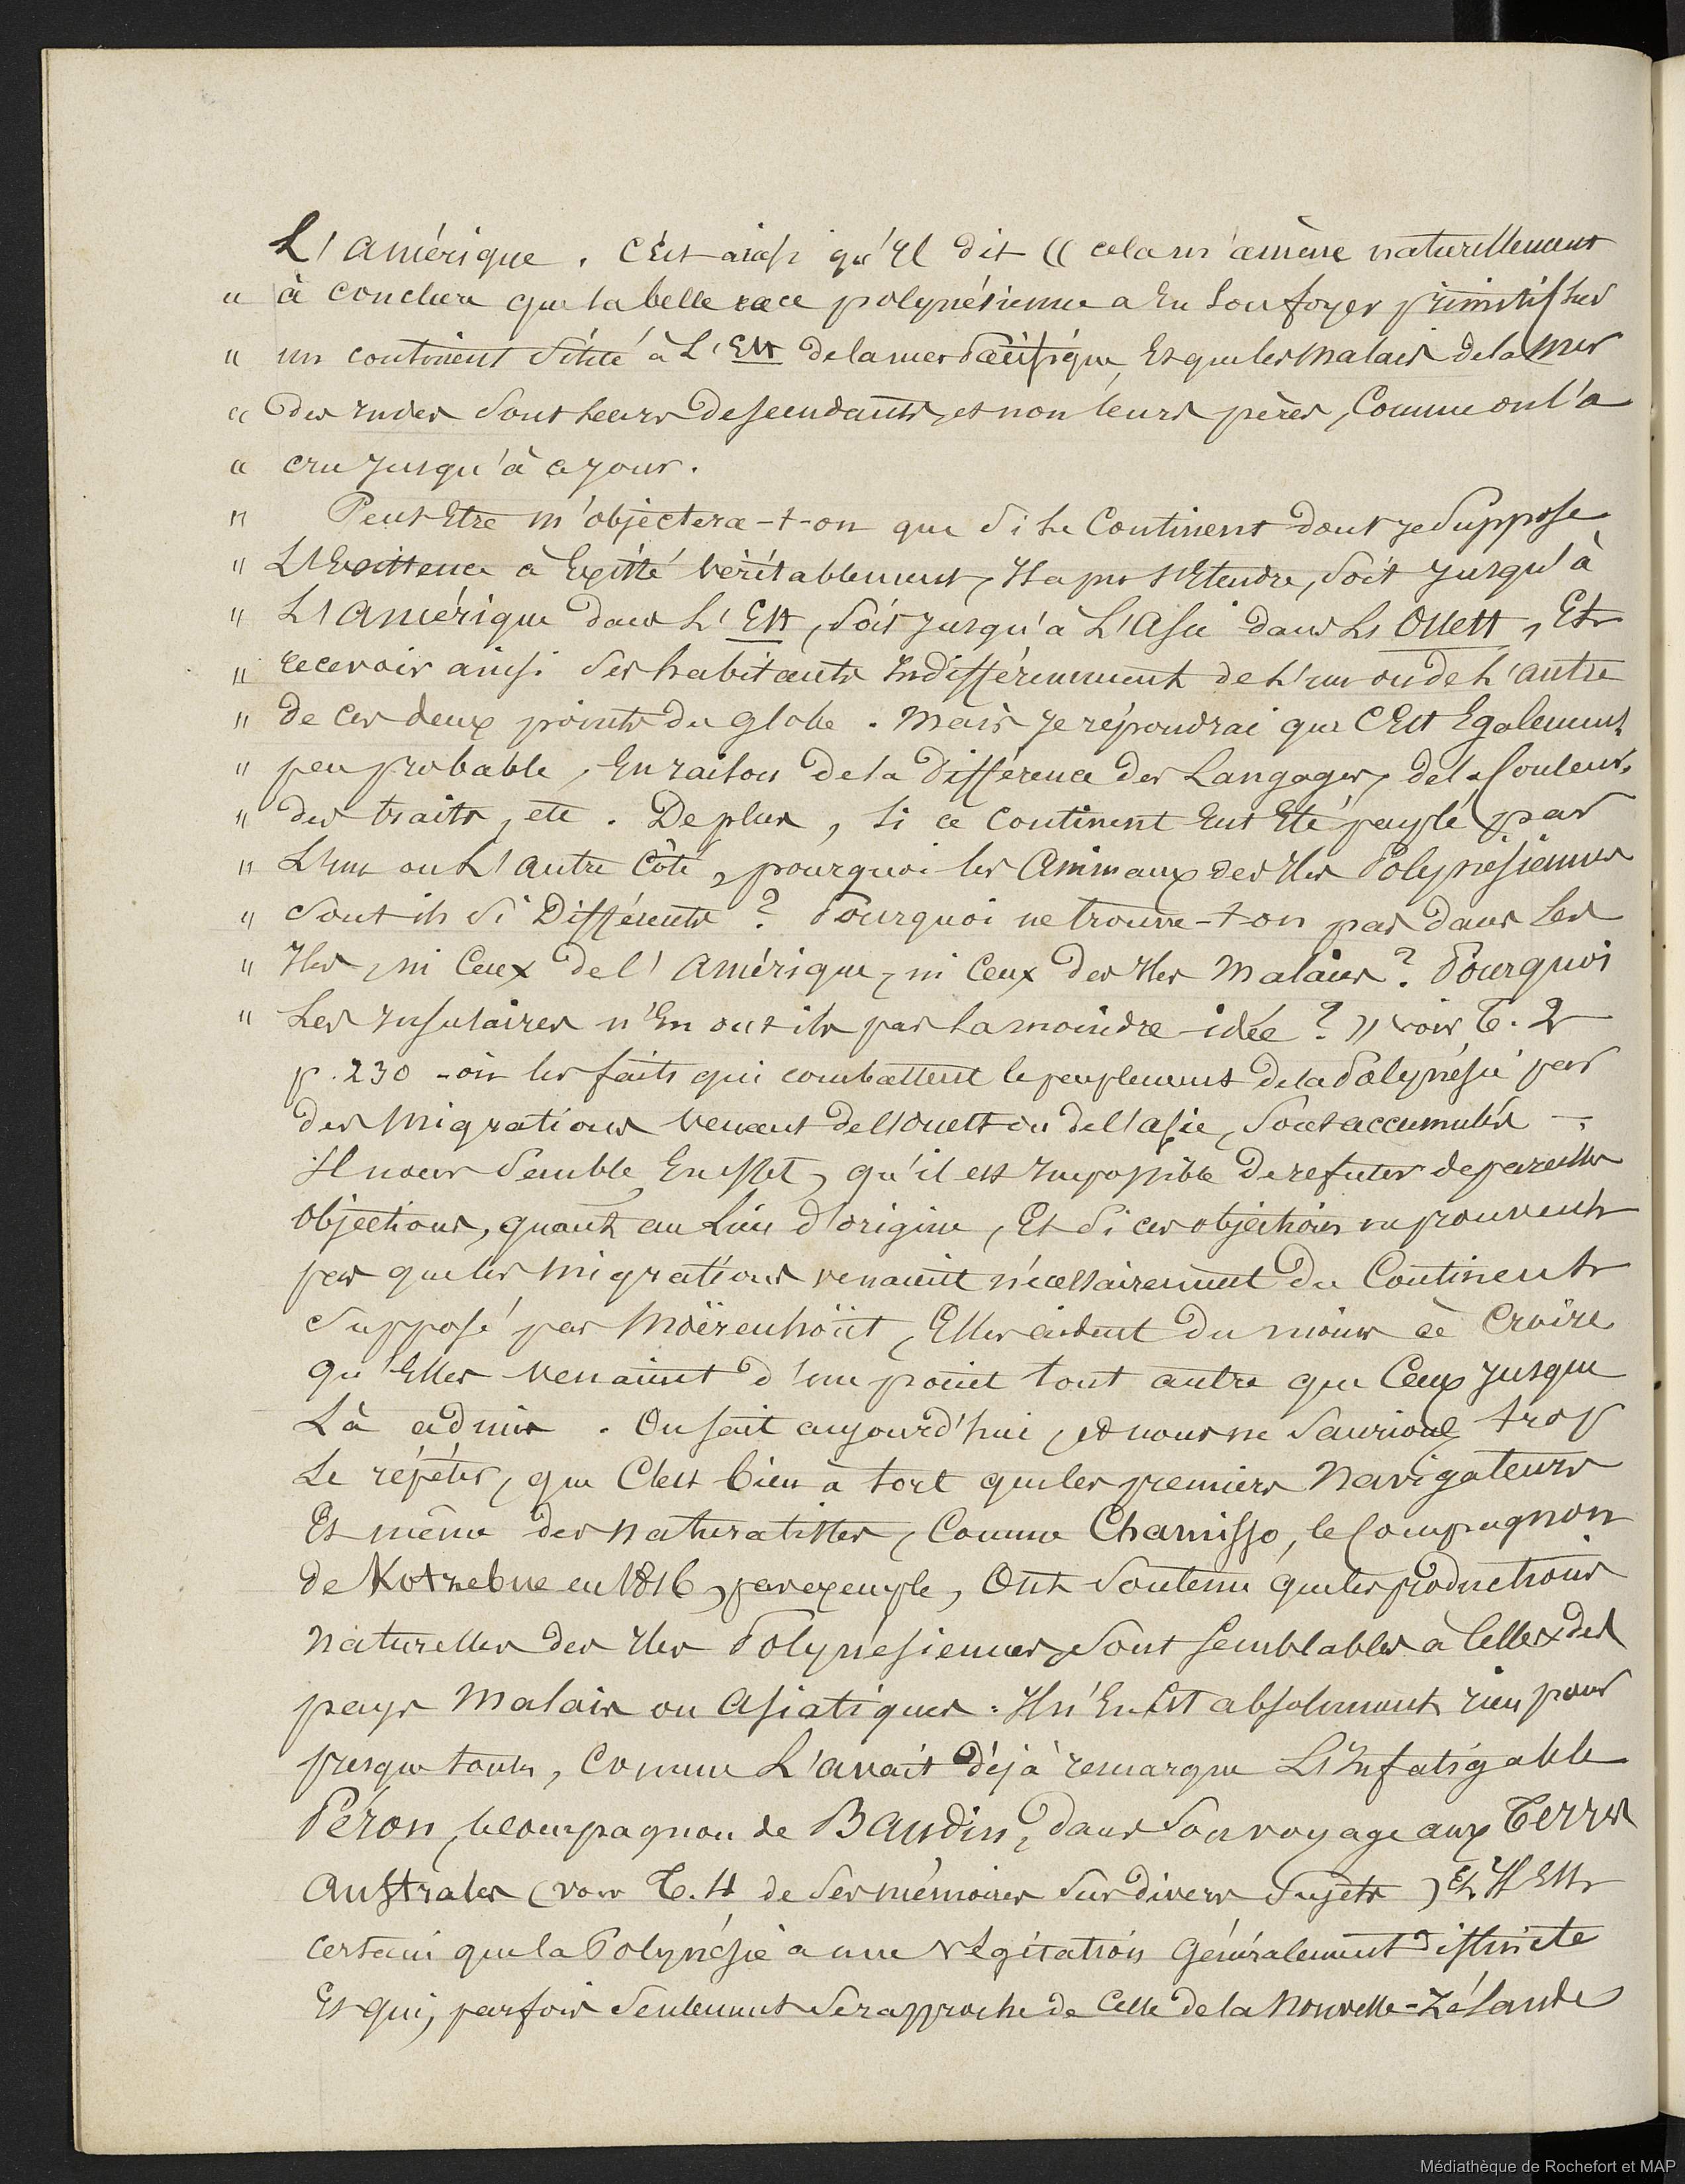 L'Amérique. C'Est ainsi qu'Il dit « cela m'amène naturellement
" à conclure que la belle race polynésienne a Eu Son foyer primitif Sur
" un continent Situé à L'Est de la mer Pacifique, Et que les Malais de la Mer
" des Indes Sont Leurs Descendants, et non leurs pères, Comme on l'a
" cru Jusqu'à ce Jour.
" Peut-Etre m'objectera-t-on que Si Le Continent dont Je Suppose
" L'Existence a Existé Véritablement, Il a pu S'Etendre, Soit Jusqu'à
" L'Amérique dans L'Est, Soit Jusqu'à L'Asie dans L'Ouest, Et
" recevoir ainsi Ses habitants Indifféremment de L'un ou de L'autre
" de Ces deux points du Globe. Mais Je répondrai que C'Est Egalement
" peu probable, En raison De la Différence Des Langages, de la Couleur,
" des traits, etc. De plus, Si ce Continent Eut Eté peuplé par
" L'un ou L'autre Côté, pourquoi les Animaux des Iles Polynésiennes
" Sont-ils Si Différents ? Pourquoi ne trouve-t-on pas dans Les
" Iles, ni Ceux de l'Amérique, ni Ceux des Iles Malaises ? Pourquoi
" Les Insulaires n'En ont ils pas La moindre idée ? » voir T. 2
p. 230 - où les faits qui combattent le peuplement de la Polynésie par
des Migrations Venant de l'Ouest ou de l'Asie, Sont accumulés -.
Il nous Semble En effet, qu'il est Impossible De refuter de pareilles
Objections, quant au Lieu d'origine, Et Si ces objections ne prouvent
pas que les Migrations venaient nécessairement Du Continent
Supposé par Moërenhoüt, Elles aident Du moins à Croire
qu'Elles Venaient d'un point tout autre que Ceux Jusque
Là admis. On sait aujourd'hui, et nous ne Saurions trop
Le répéter, que C'est bien à tort que les premiers Navigateurs
Et même des Naturalistes, Comme Chamisso, le Compagnon
de Kotzebue en 1816, par exemple, Ont Soutenu que les productions
Naturelles des Iles Polynésiennes Sont Semblables à Celles des
pays Malais ou Asiatiques : Il n'En Est absolument rien pour
presque toutes, Comme L'avait Déjà remarque L'Infatigable
Péron, le compagnon de Baudin, Dans Son voyage aux Terres
Australes (voir T. 4 de Ses mémoires Sur divers Sujets) Et Il Est
certain que la Polynésie a une Végétation Généralement Distincte
Et qui, parfois Seulement Se rapproche de Celle de la Nouvelle-Zélande
Médiathèque de Rochefort et MAP